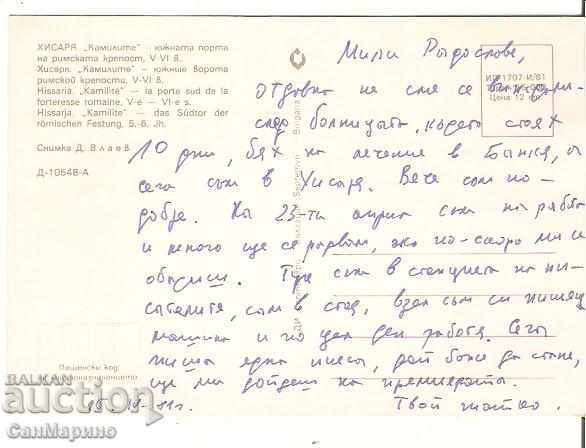 ХИСАРЯ. „Камилите" – южната порта
на римската крепост, V-VI в.
Хисаря. „Камилите" – южние ворота
римской крепости, V-VI в.
Hissaria. „Kamilité" – la porte sud de la
forteresse romaine, V-e – VI-e s.
Hissarja. „Kamilite" – das Südtor der
römischen Festung, 5.-6. Jh.
Снимка Д. Влаев
Д-10548-А
ИП 1707-И/81
Цена: 12 ст.
Мили Радославе,
отдавна не сме се виждали.
След болницата, където стоях
10 дни, бях на лечение в Банкя, а
сега съм в Хисаря. Вече съм по-
добре. На 23-ти април съм на работа
и много ще се радвам, ако по-скоро ми се
обадиш. Тук съм в станцията на пи-
сателите, сам в стая, взел съм си пишеща
машина и по цял ден работя. Сега
пиша една пиеса, дай боже да стане,
ще ми дойдеш на премиерата.
Твой татко.
Пощенски код
BALKAN
auction
СанМарино